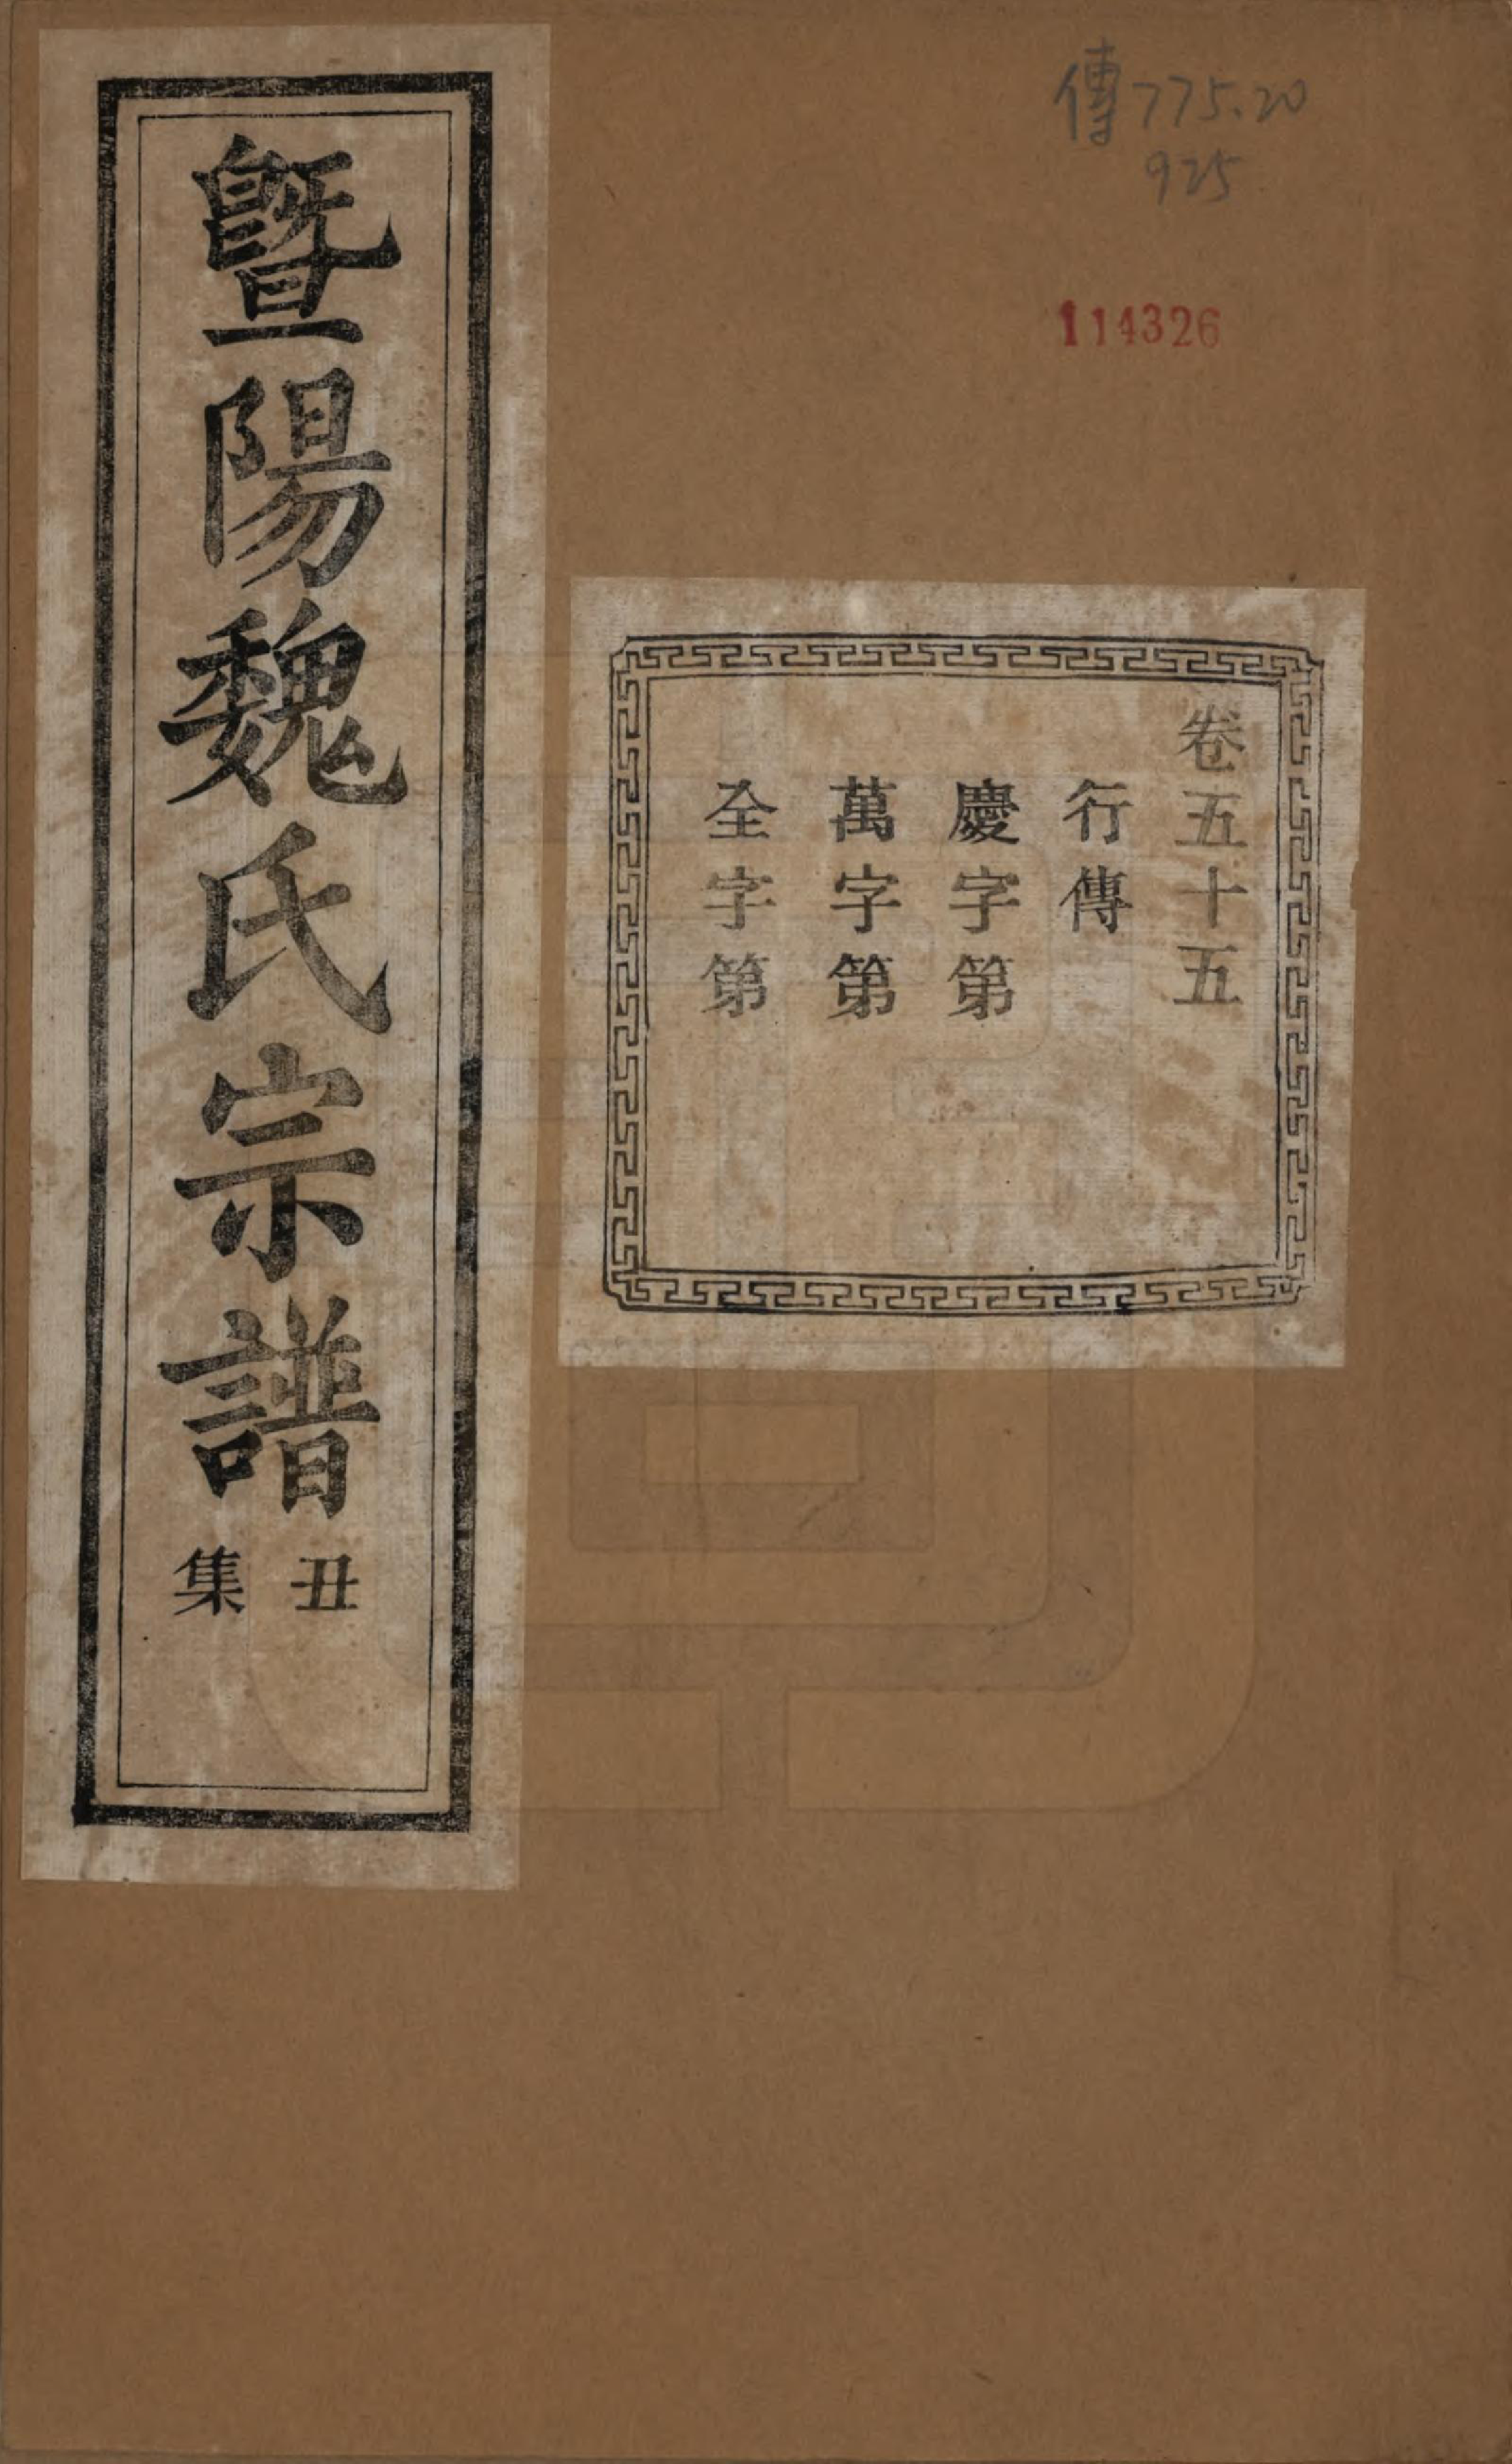 傳775.20
925
114326
卷五十五
行傳
慶字第
萬字第
全字第
暨陽魏氏宗譜
丑集